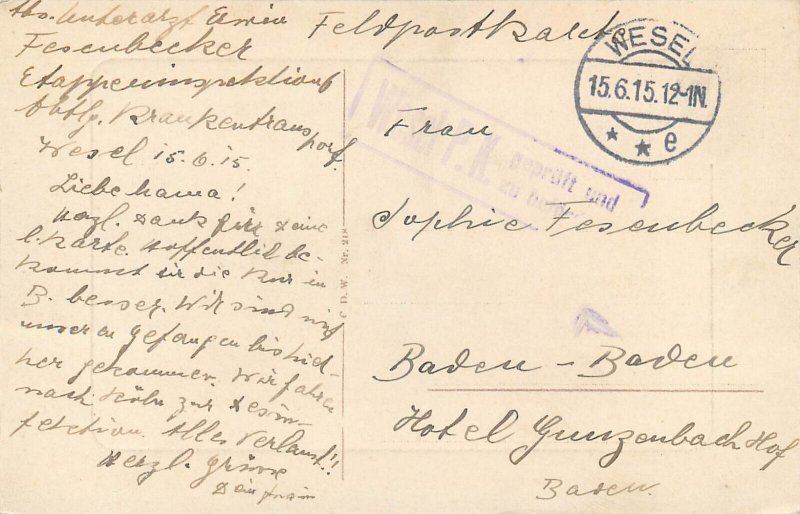 Abs. Unterarzt Erwin
Fesenbecker
Etappeninspektion 6
Abtlg. Krankentransport.
Wesel 15.6.15.
Liebe Mama!
Herzl. Dank für Deine
l. Karte. Hoffentlich be-
kommt dir die Kur in
B. besser. Wir sind mit
unseren Gefangen bis hie-
her gekommen. Wir fahren
nach Köln zur Desin-
fektion. Alles Verlaust!!
Herzl. Grüsse
Dein Erwin
Feldpostkarte
WESEL
15.6.15.12-1N.
* * e
P.K.
geprüft und
zu
Frau
Sophie Fesenbecker
Baden-Baden
Hotel Gunzenbach Hof
Baden.
C. D. W. Nr. 218